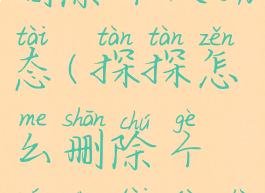 tài tàn tàn zěn
态（探探怎
me shān chú gè
么删除个